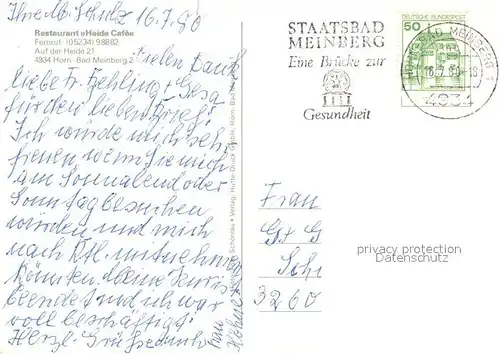 Ihre M. Schulz 16.7.80
Restaurant »Heide Cafe«
Fernruf: (05234) 98882
Auf der Heide 21
4934 Horn-Bad Meinberg 2
Vielen Dank
liebe Fr. Gesa
für den lieben Brief!
Ich würde mich sehr
freuen wenn Sie mich
am Sonnabend oder
Sonntag besuchen
würden und mich
nach mitnehmen
könnten. Meine
beendet und ich war
voll beschäftigt!
Herzl. Grüße auch
STAATSBAD
MEINBERG
Eine Brücke zur
Gesundheit
DEUTSCHE BUNDESPOST
50
BAD MEINBERG
16.7.80-18
4934
Frau
G+G
Schu
3260
privacy protection
Datenschutz